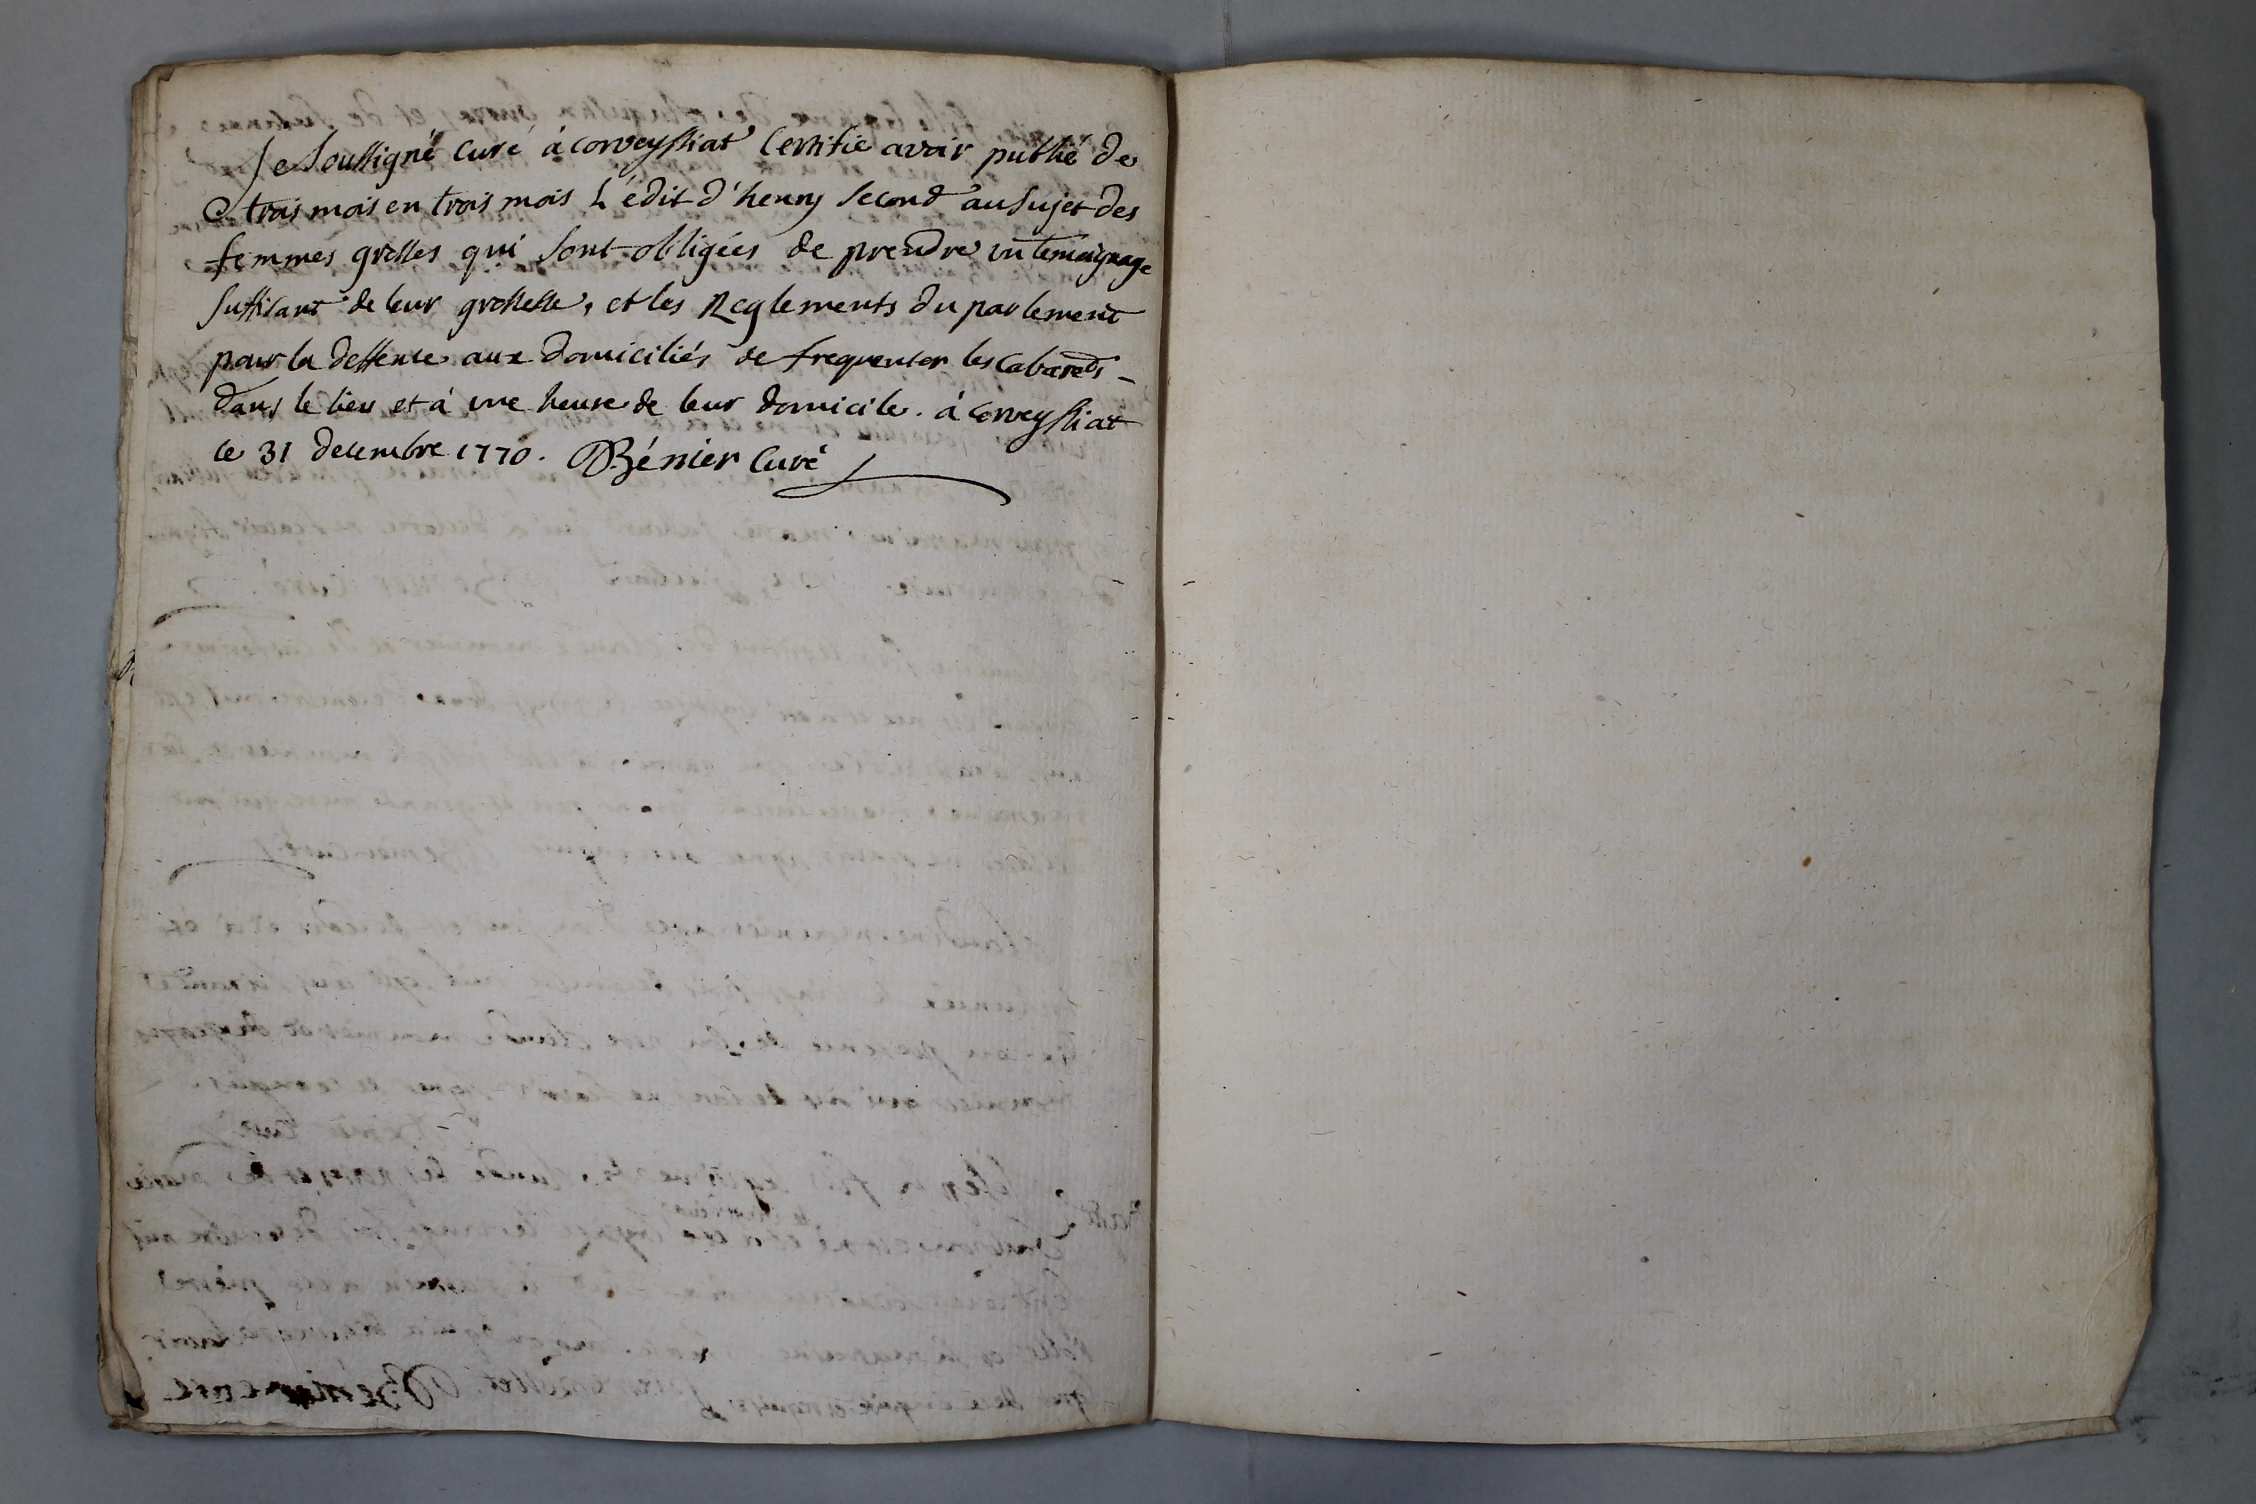 Je Soussigné Curé à corveyssiat Certifie avoir publié de
trois mois en trois mois L'édit d'henry second au sujet des
femmes grosses qui sont obligées de prendre un temoignage
suffisant de leur grossesse, et les Reglements du parlement
pour la deffense aux domiciliés de frequenter les Cabarets
dans le lieu et à une heure de leur domicile. à Corveyssiat
le 31 decembre 1770. Bénier Curé